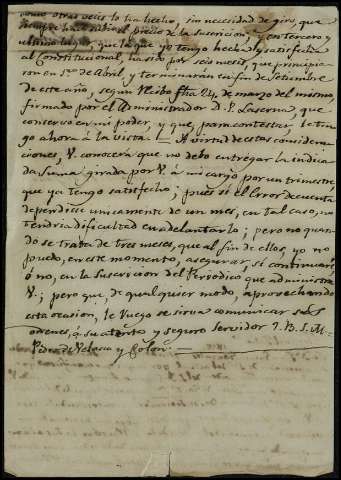 como otras veces lo ha hecho, sin necesidad de giro, que
siempre hace subir el precio de la suscricion, y en tercero y
ultimo lugar, que la que yo tengo hecha y satisfecha
al Constitucional, ha sido por seis meses, que principia
ron en 1.º de Abril, y terminarán en fin de Setiembre
de este año, segun Recibo fha 24 de marzo del mismo,
firmado por el Administrador D. P. Laserna, que
conservo en mi poder, y que, para contestar, le ten
go ahora á la vista. A virtud de estas considera
ciones, V. conocerá que no debo entregar la indica
da suma girada por V. á mi cargo por un trimestre,
que ya tengo satisfecho; pues si el error de cuenta
dependiese unicamente de un mes, en tal caso, no
tendria dificultad en adelantarlo; pero no quan
do se trata de tres meses, que al fin de ellos, yo no
puedo, en este momento, asegurar, si continuaré,
ó no, en la suscricion del Periodico que administra
V.; pero que, de qualquier modo, aprovechando
esta ocasion, le ruego se sirva comunicar sus
ordenes, á su atento y seguro servidor Q. B. S. M.
Pedro de Velasco y Colon.